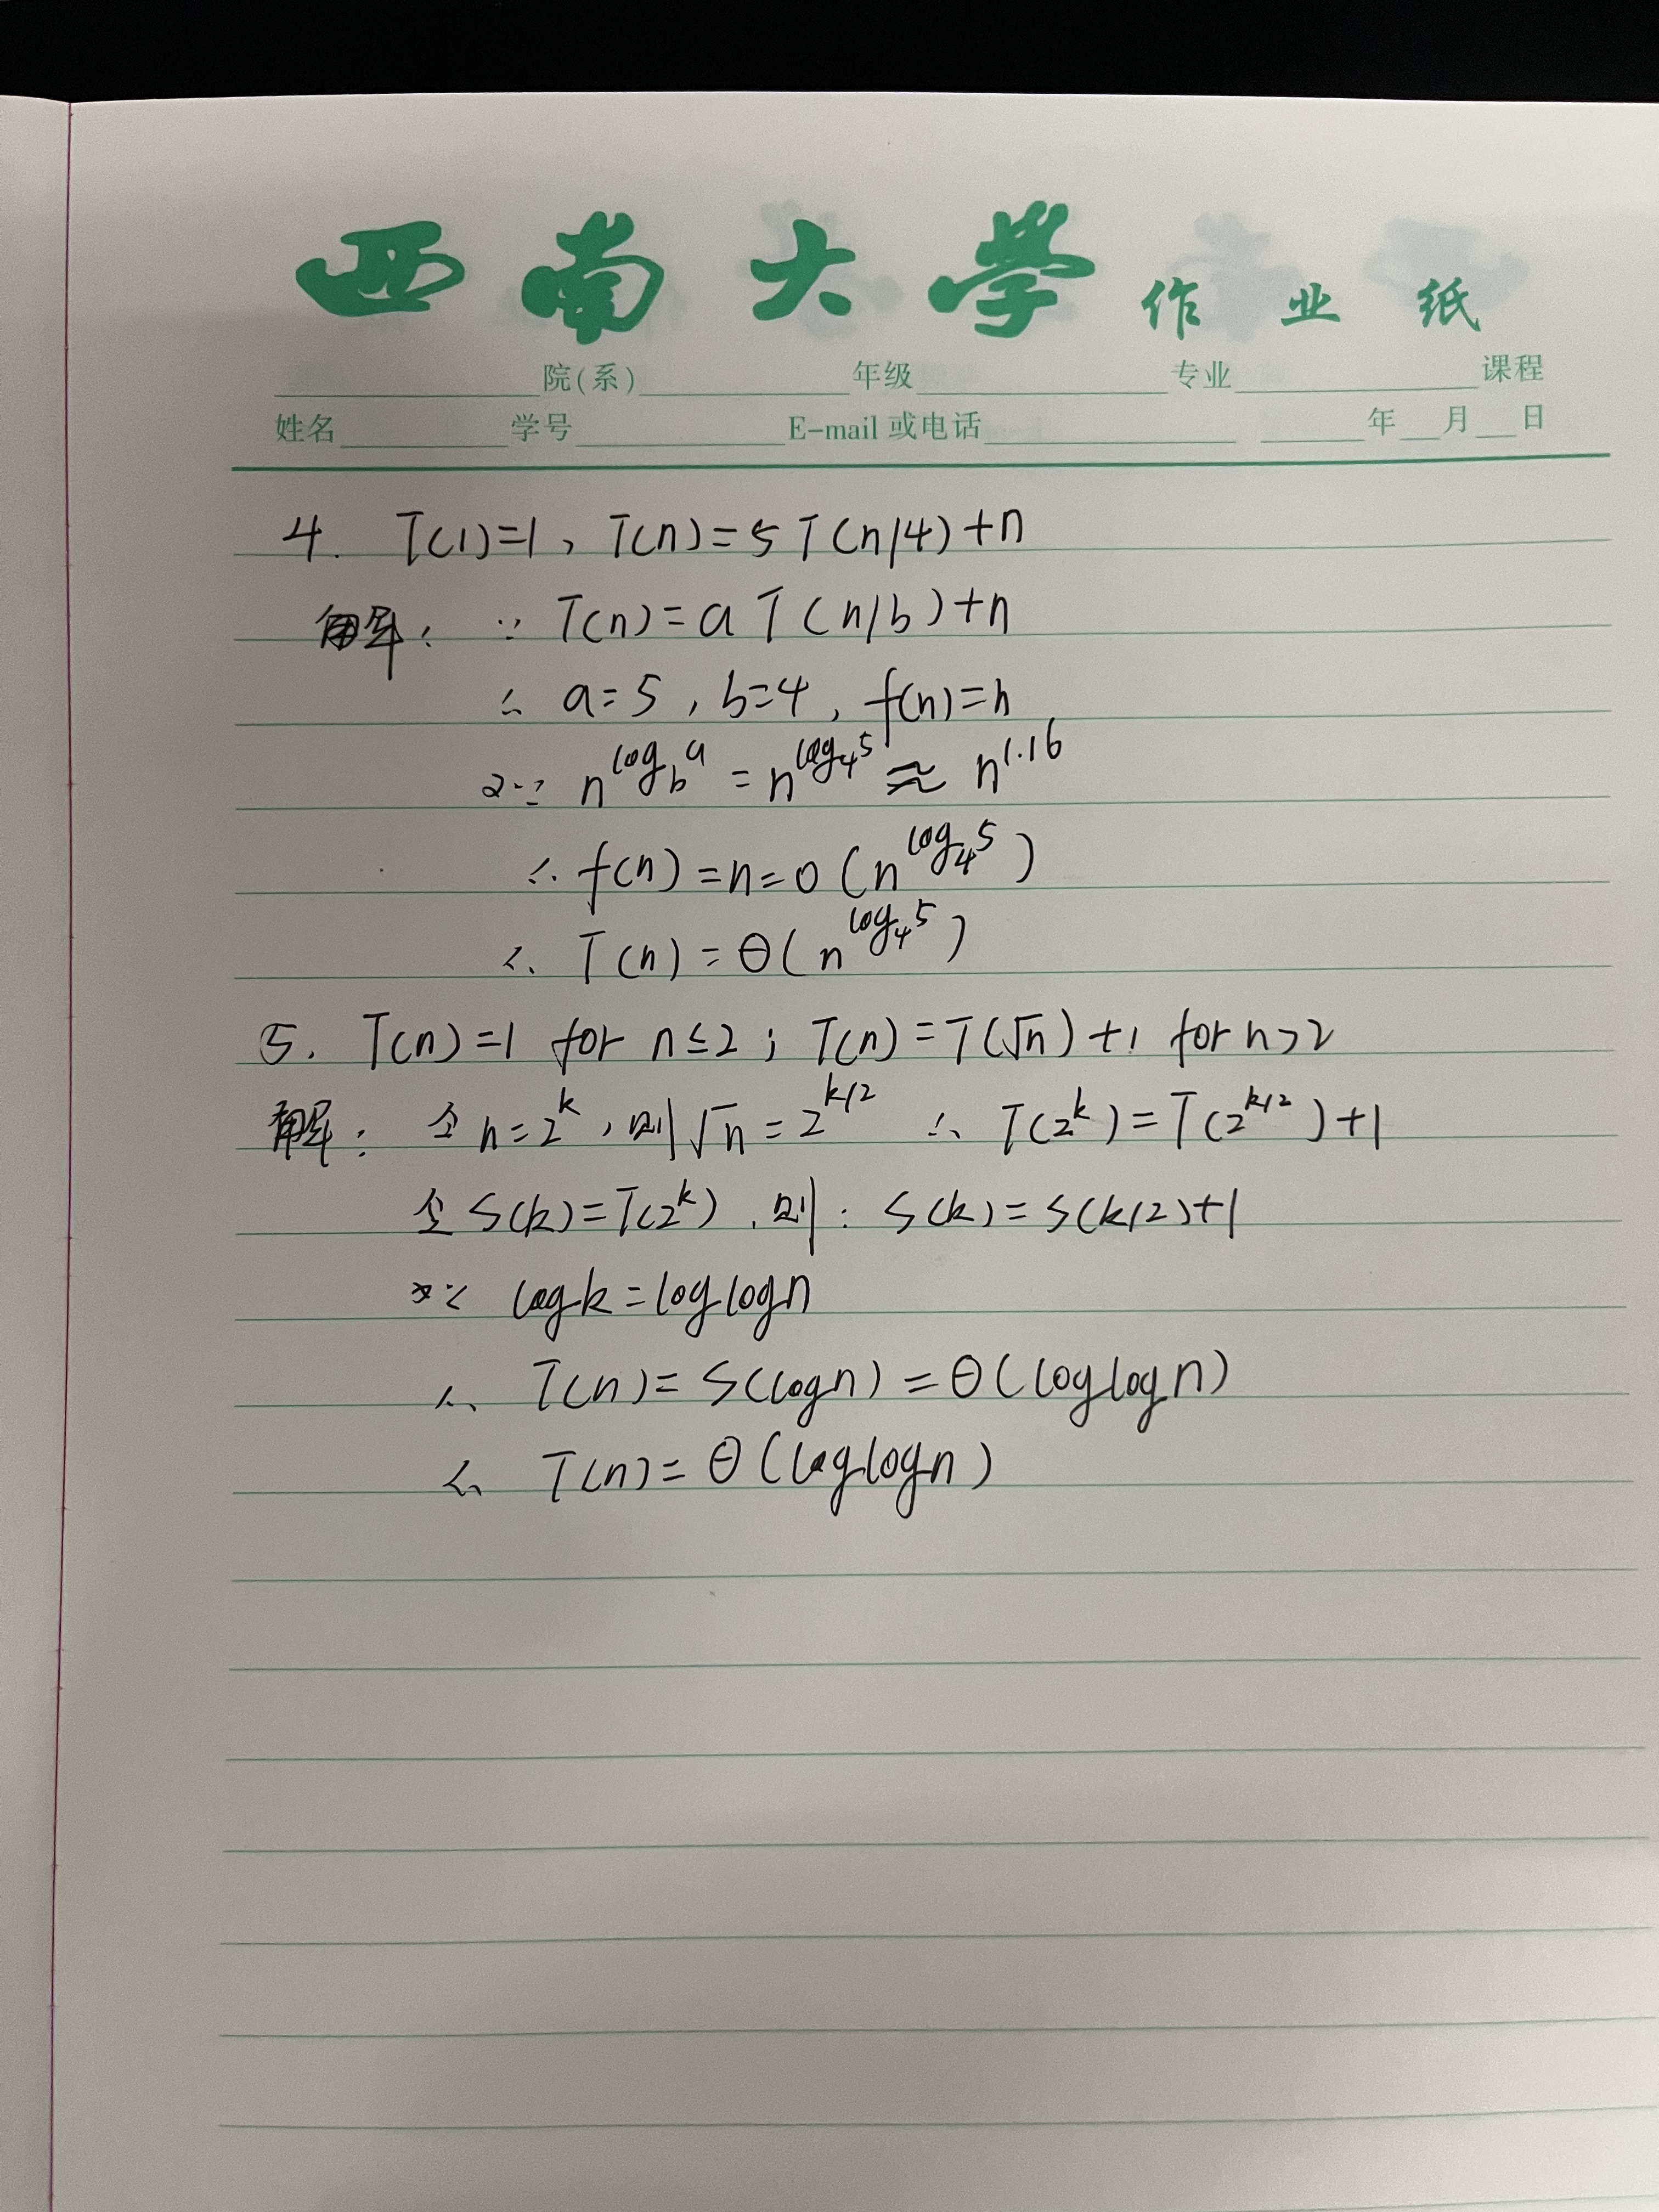 西南大学作业纸
院(系) 年级 专业 课程
姓名 学号 E-mail或电话 年 月 日
4. T(1)=1, T(n)=5T(n/4)+n
解: ∵ T(n)=aT(n/b)+n
∴ a=5, b=4, f(n)=n
又∵ n^{log_b a} = n^{log_4 5} ≈ n^{1.16}
∴ f(n)=n=O(n^{log_4 5})
∴ T(n)=Θ(n^{log_4 5})
5. T(n)=1 for n≤2; T(n)=T(√n)+1 for n>2
解: 令n=2^k, 则√n=2^{k/2} ∴ T(2^k)=T(2^{k/2})+1
令S(k)=T(2^k), 则: S(k)=S(k/2)+1
又∵ logk=loglogn
∴ T(n)=S(logn)=Θ(loglogn)
∴ T(n)=Θ(loglogn)